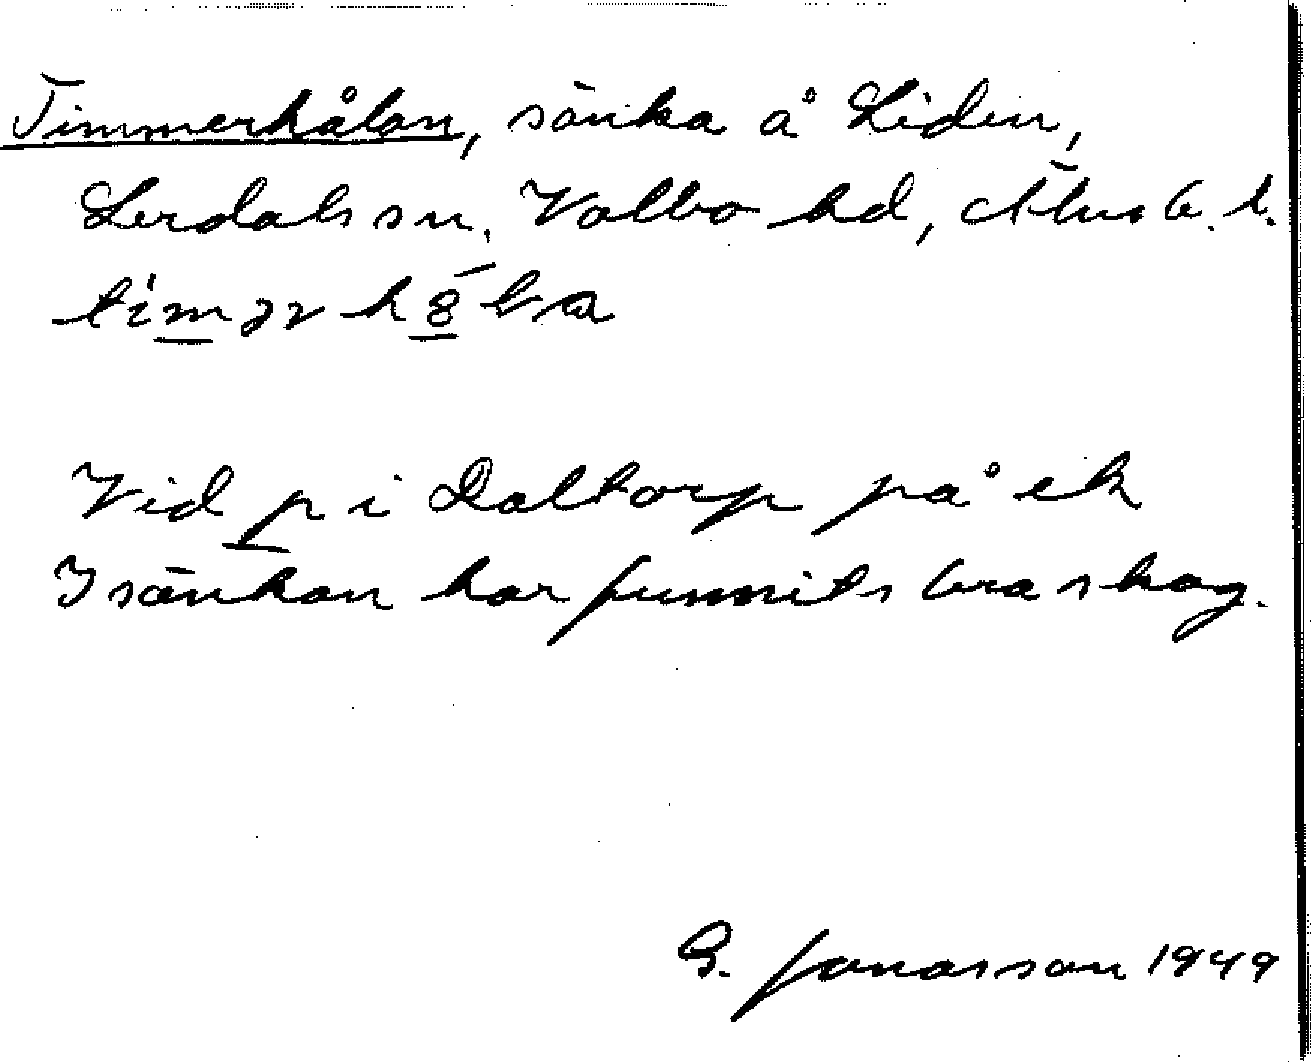 Timmerhålan, sänka å Liden,
Lerdals sn, Valbo hd, Älvsb. l.
Vid p i Daltorp på ek
I sänkan har funnits bra skog.
G. Jonasson 1949